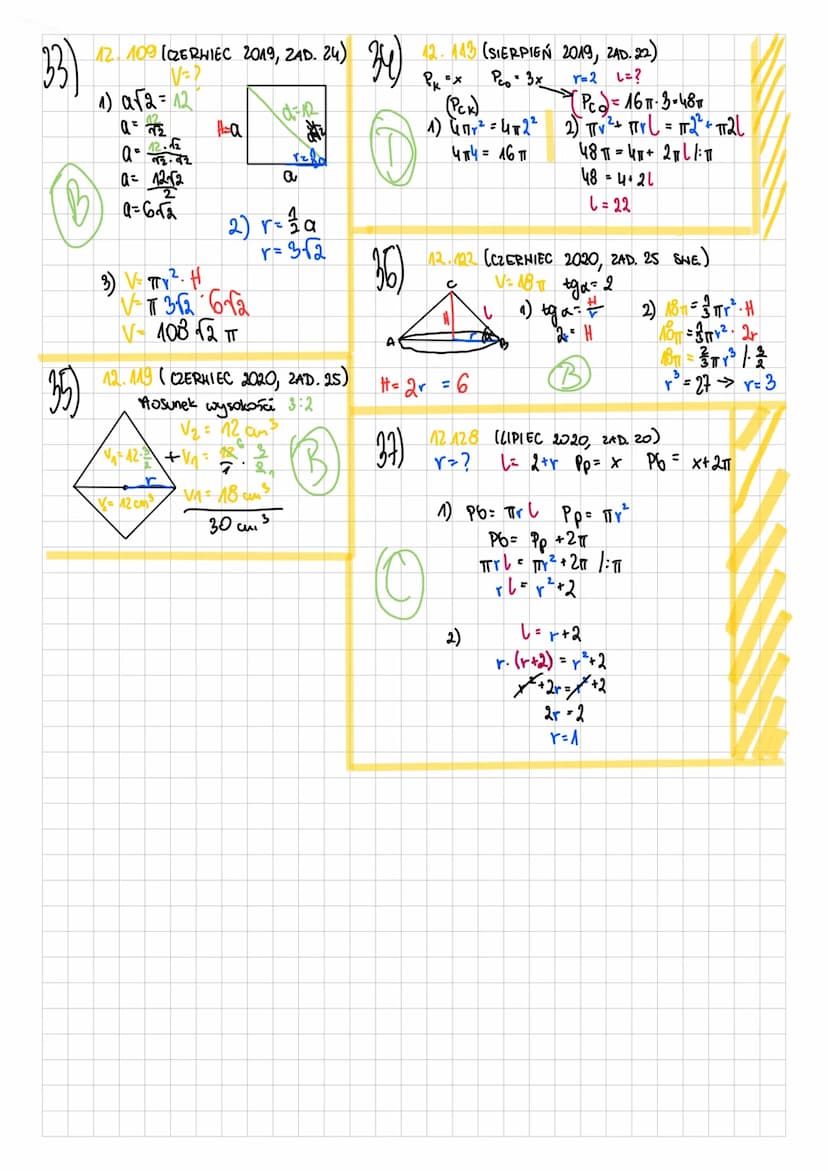 33) 12.109 (CZERWIEC 2019, ZAD. 24)
V=?
1) a√2 = 12
a = 12/√2
a = 12·√2/√2·√2
a = 12√2/2
a = 6√2
d=12
H=a
a
B
2) r = 1/2 a
r = 3√2
3) V = πr² · H
V = π 3√2 · 6√2
V = 108 √2 π
34) 12.113 (SIERPIEŃ 2019, ZAD. 22)
Pk = x Pco = 3x r=2 l=?
(Pck)
1) 4πr² = 4π2²
4π4 = 16π
(Pco) = 16π·3=48π
2) πr² + πrl = π2² + π2l
48π = 4π + 2πl /:π
48 = 4 + 2l
l = 22
D
35) 12.119 (CZERWIEC 2020, ZAD. 25)
stosunek wysokości 3:2
V₂ = 12 cm³
V₁=12·3/2
r
V₂=12cm³
V₁ = 18 cm³
30 cm³
B
36) 12.122 (CZERWIEC 2020, ZAD. 25
V = 18π tgα = 2
C
H
l
A
r
α
B
1) tgα = H/r
2r = H
H = 2r = 6
B
2) 18π = 1/3 πr² · H
18π = 1/3 πr² · 2r
18π = 2/3 πr³ /· 3/2
r³ = 27 → r = 3
37) 12.128 (LIPIEC 2020, ZAD. 20)
r=? l = 2+r Pp = x Pb = x+2π
1) Pb = πrl Pp = πr²
Pb = Pp + 2π
πrl = πr² + 2π /:π
rl = r² + 2
C
2) l = r+2
r·(r+2) = r²+2
r²+2r = r²+2
2r = 2
r = 1